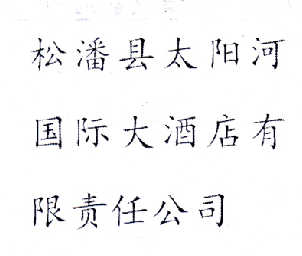 松潘县太阳河
国际大酒店有
限责任公司